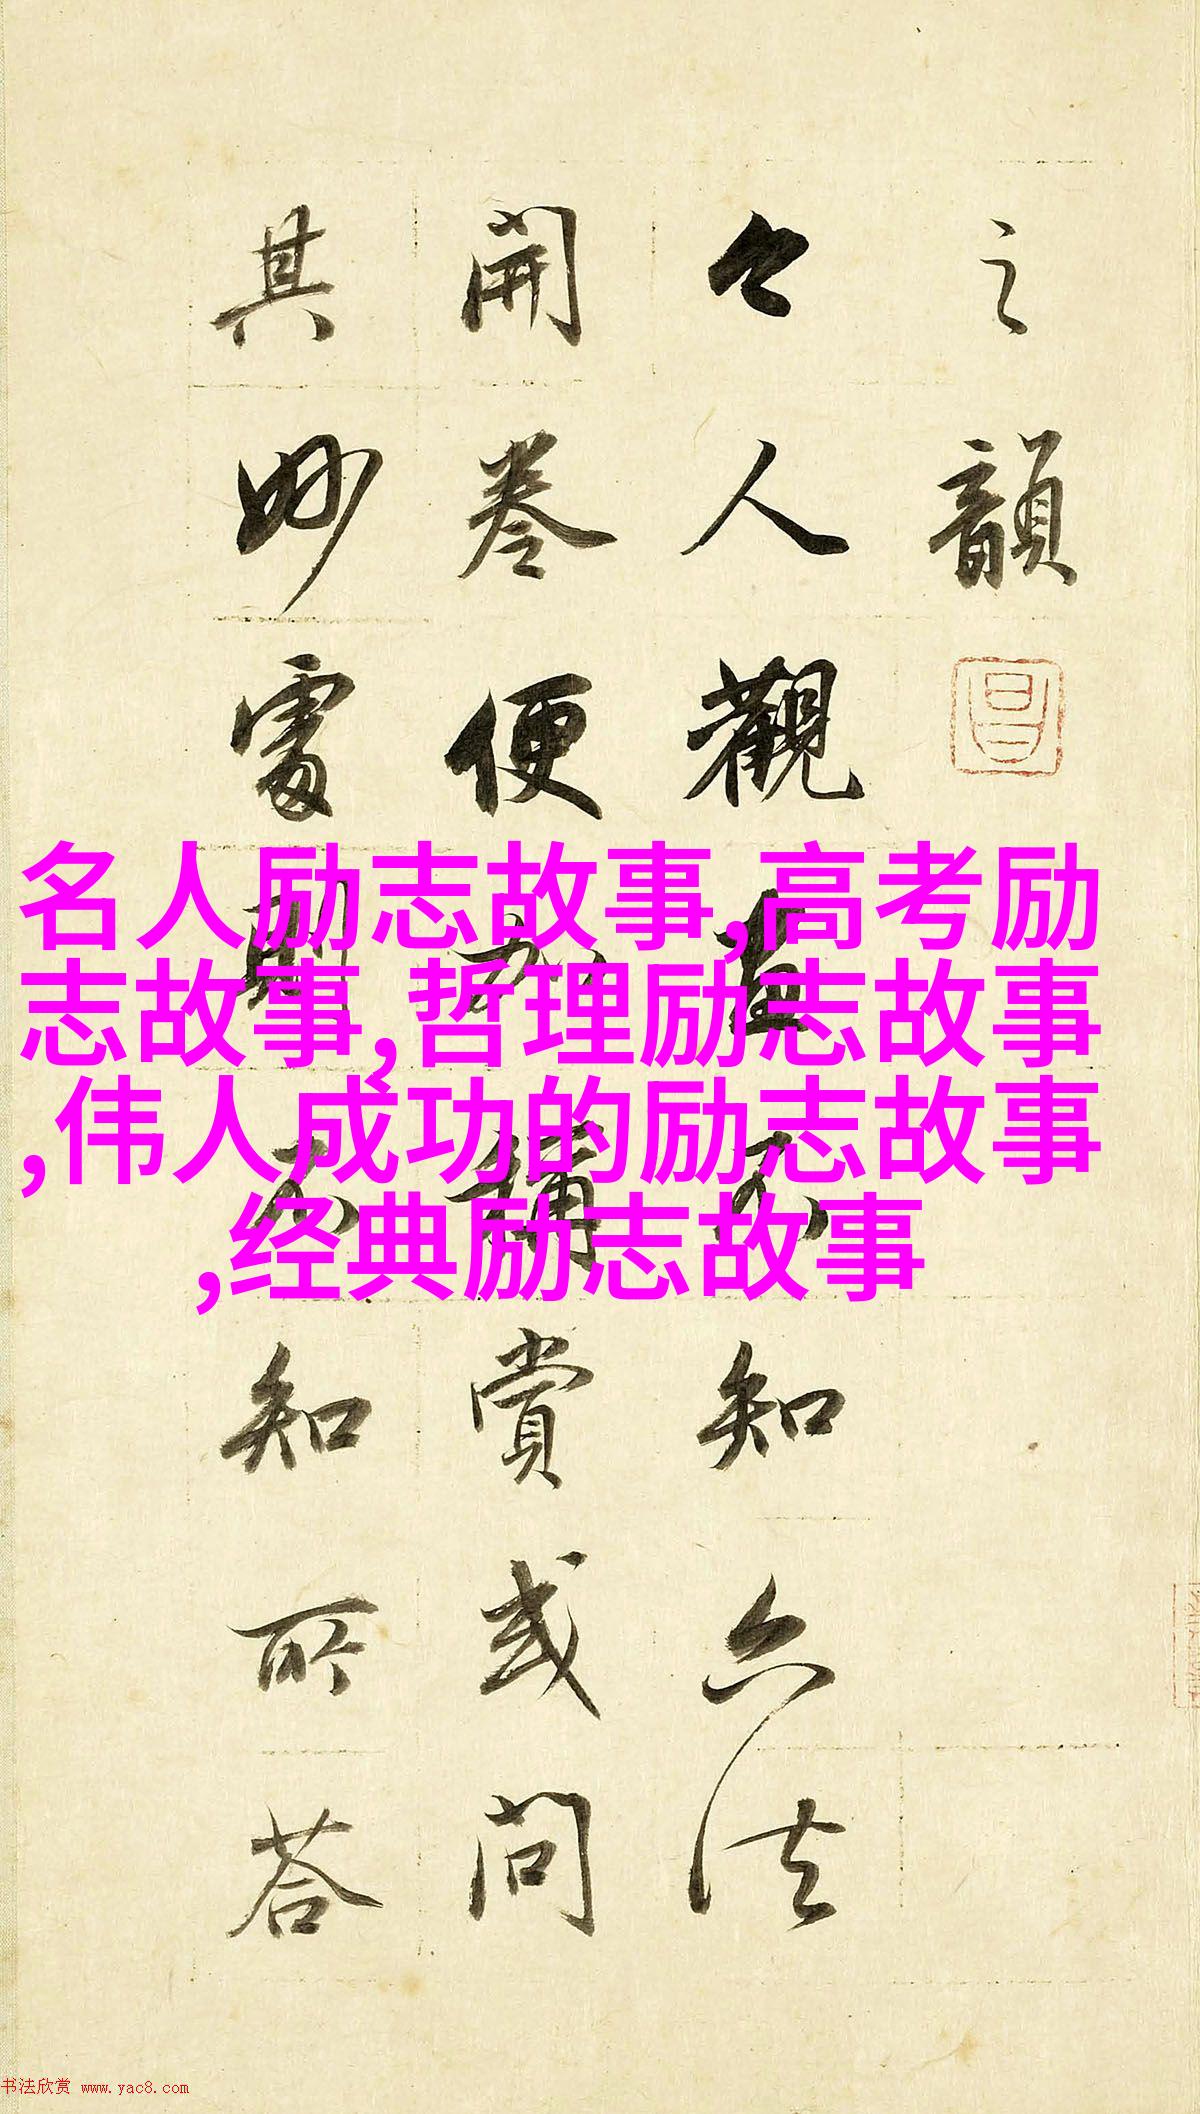 之韻
今人觀畫不知六法
開卷便加稱賞或問
其妙處則不知所答
名人励志故事,高考励
志故事,哲理励志故事
,伟人成功的励志故事
,经典励志故事
书法欣赏 www.yac8.com